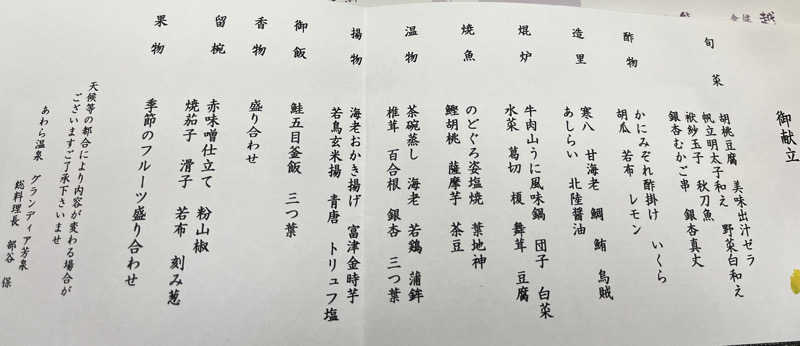 御献立
旬菜
胡桃豆腐 美味出汁ゼラ
帆立明太子和え 野菜白和え
袱紗玉子 秋刀魚
銀杏むかご串 銀杏真丈
酢物
かにみぞれ酢掛け いくら
胡瓜 若布 レモン
造里
寒八 甘海老 鯛 鮪 烏賊
あしらい 北陸醤油
焜炉
牛肉山うに風味鍋 団子 白菜
水菜 葛切 榎 舞茸 豆腐
焼魚
のどぐろ姿塩焼 葉地神
鰹胡桃 薩摩芋 茶豆
温物
茶碗蒸し 海老 若鶏 蒲鉾
椎茸 百合根 銀杏 三つ葉
揚物
海老おかき揚げ 富津金時芋
若鳥玄米揚 青唐 トリュフ塩
御飯
鮭五目釜飯 三つ葉
香物
盛り合わせ
留椀
赤味噌仕立て 粉山椒
焼茄子 滑子 若布 刻み葱
果物
季節のフルーツ盛り合わせ
天候等の都合により内容が変わる場合が
ございますご了承下さいませ
あわら温泉 グランディア芳泉
総料理長 部谷 保